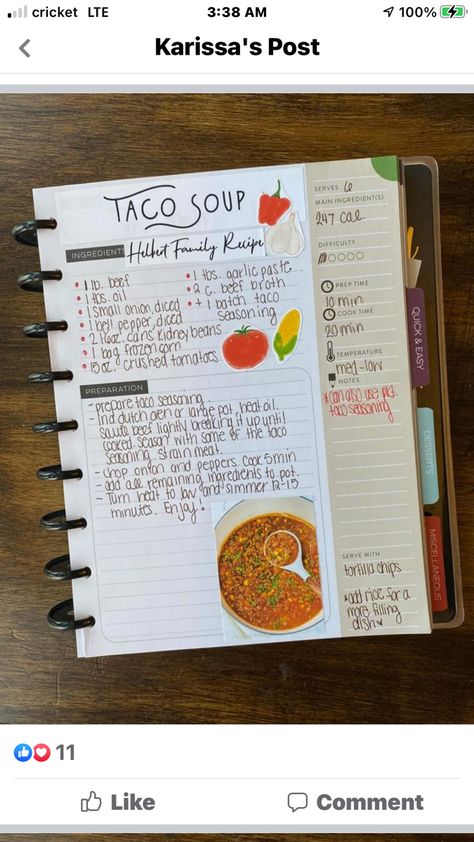 cricket LTE 3:38 AM 100%
Karissa's Post
TACO SOUP
INGREDIENTS Helbert Family Recipe
1 lb. beef
1 tbs. oil
1 small onion, diced
1 bell pepper, diced
2 16oz. cans kidney beans
1 bag frozen corn
15 oz. crushed tomatoes
1 tbs. garlic paste
2 c. beef broth
+ 1 batch taco
seasoning
PREPARATION
- prepare taco seasoning.
- In a dutch oven or large pot, heat oil.
saute beef lightly breaking it up until
cooked. Season with some of the taco
seasoning. strain meat.
- chop onion and peppers. Cook 5 min
- add all remaining ingredients to pot.
- Turn heat to low and simmer 12-15
minutes. Enjoy!
SERVES 6
MAIN INGREDIENT(S)
247 cal.
DIFFICULTY
PREP TIME
10 min
COOK TIME
20 min
TEMPERATURE
med-low
NOTES
*can also use pkt.
taco seasoning
SERVE WITH
tortilla chips
*add rice for a
more filling
dish*
QUICK & EASY
DESSERTS
MISCELLANEOUS
11
Like Comment